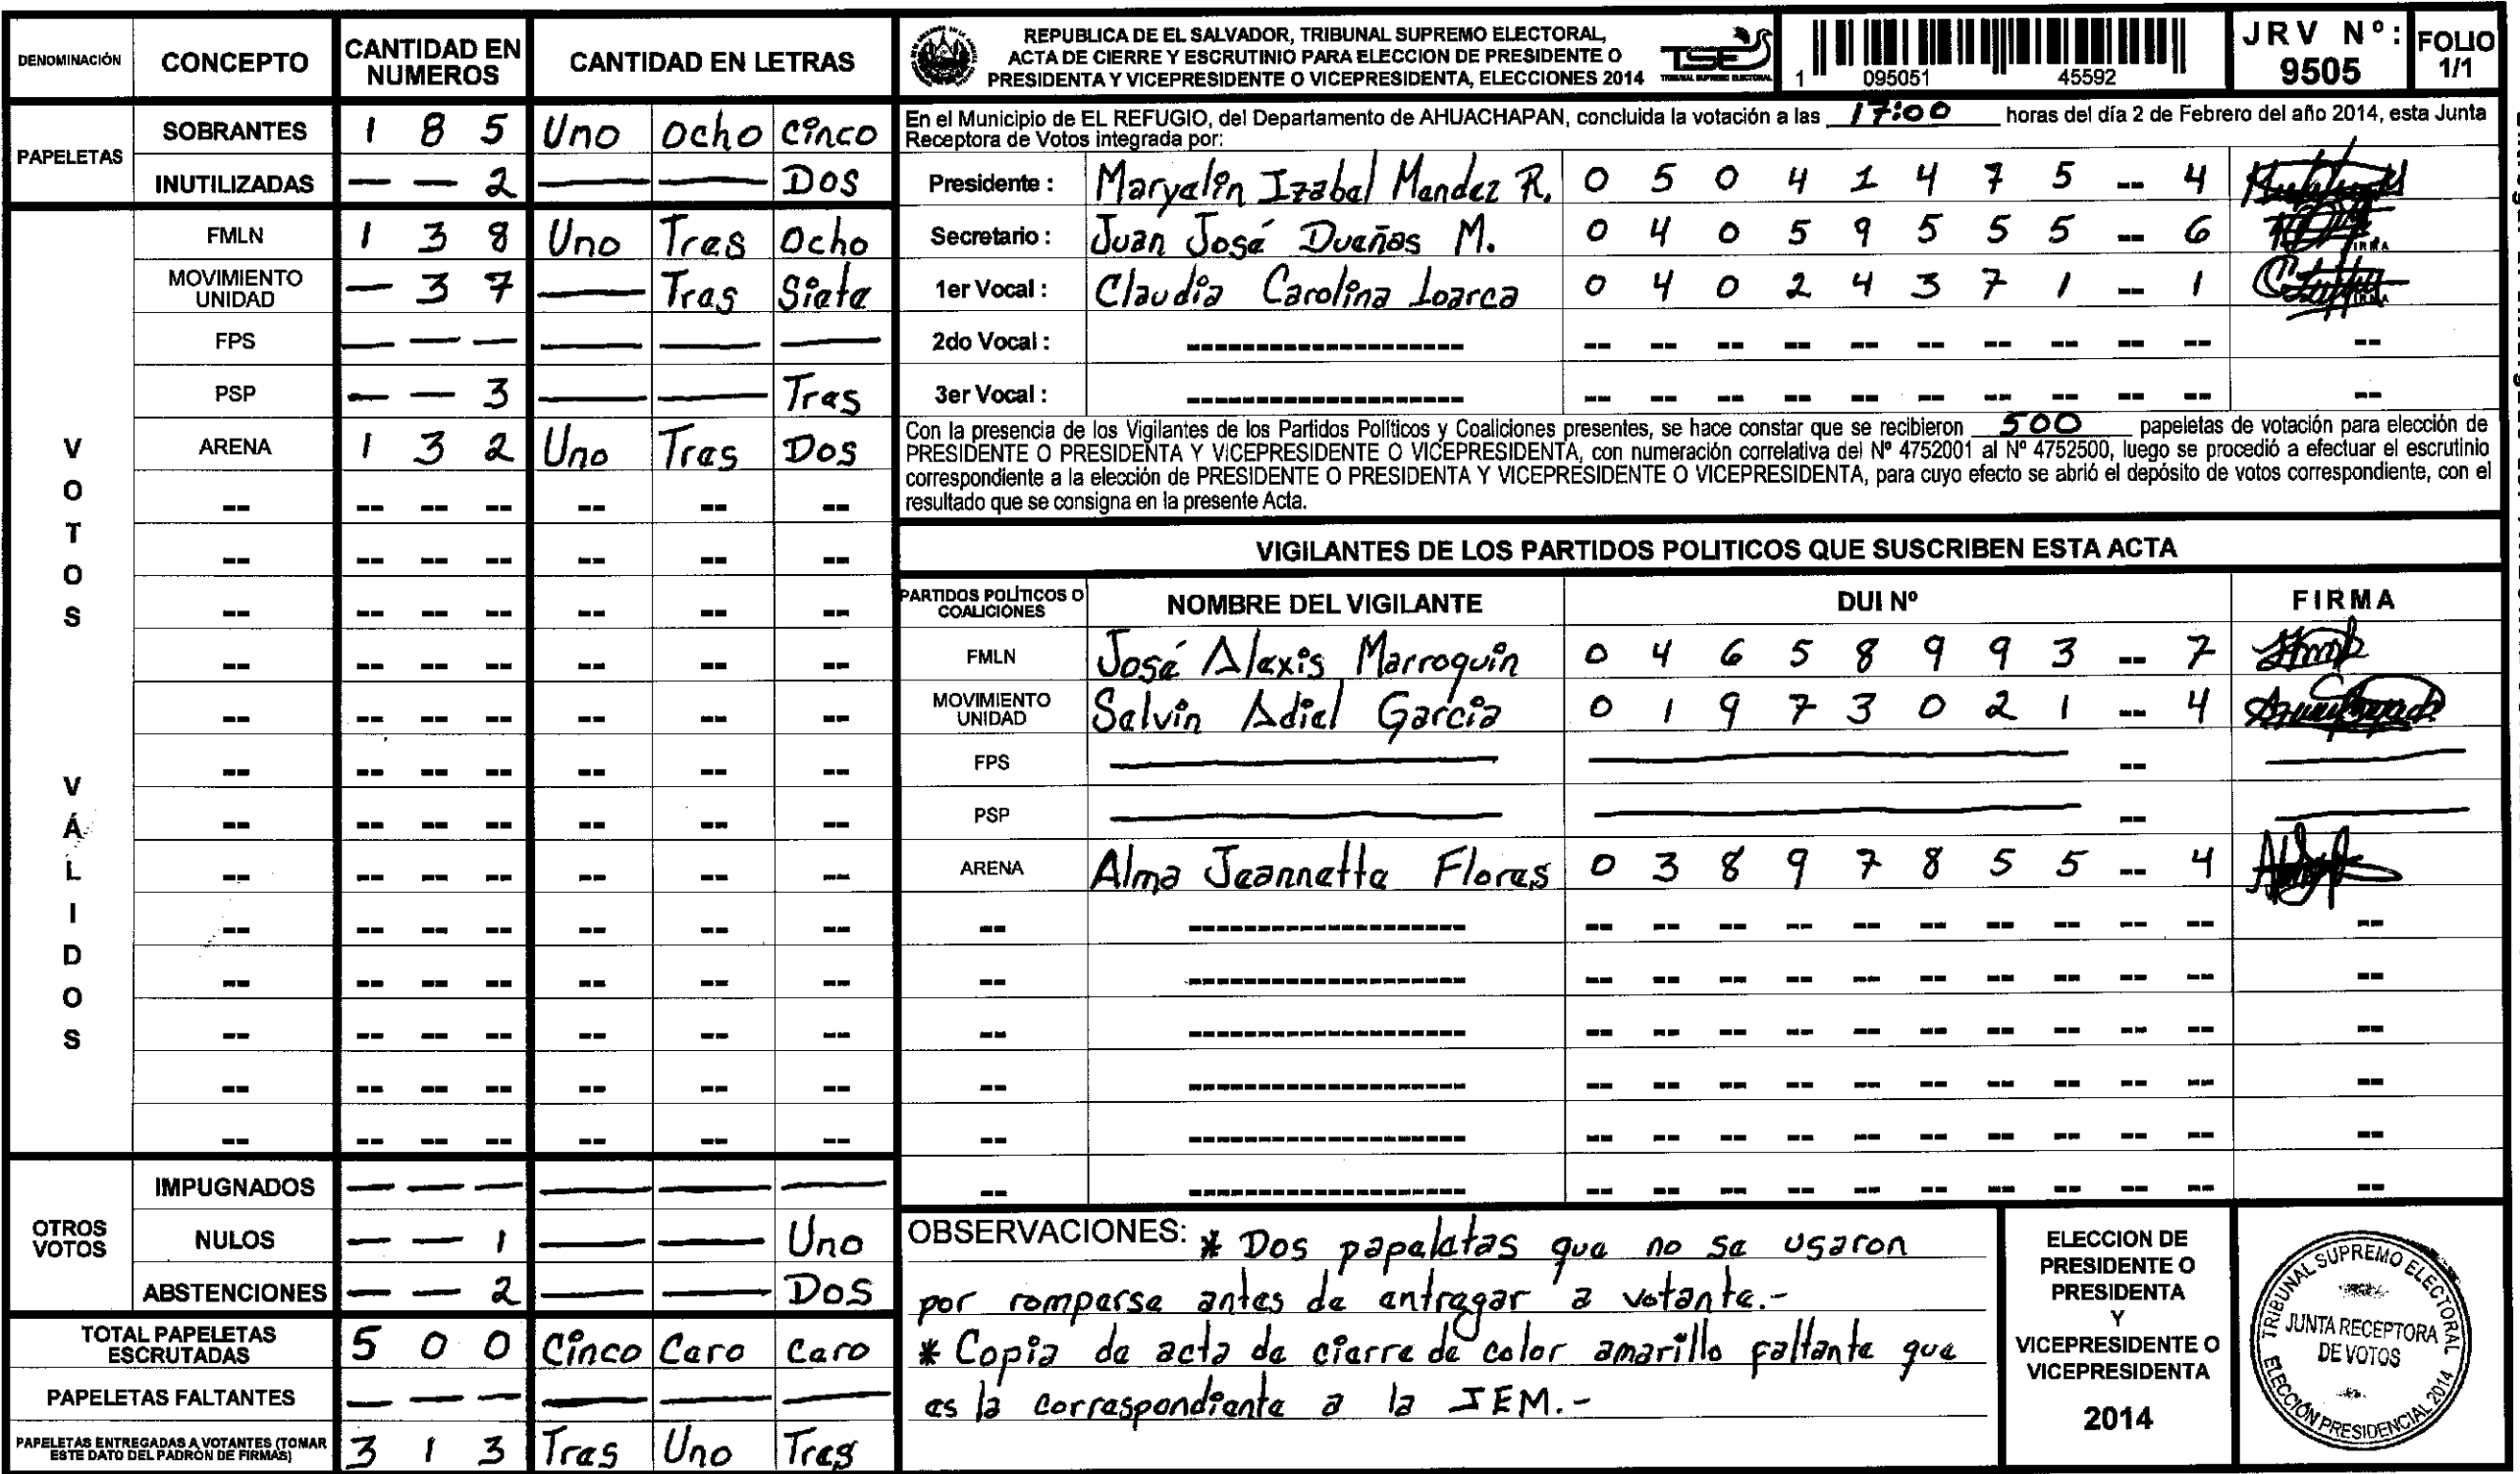 DENOMINACIÓN CONCEPTO CANTIDAD EN NUMEROS CANTIDAD EN LETRAS
PAPELETAS
SOBRANTES 1 8 5 Uno Ocho Cinco
INUTILIZADAS — — 2 — — Dos
VOTOS VÁLIDOS
FMLN 1 3 8 Uno Tres Ocho
MOVIMIENTO UNIDAD — 3 7 — Tres Siete
FPS — — — — — —
PSP — — 3 — — Tres
ARENA 1 3 2 Uno Tres Dos
-- -- -- -- -- -- --
-- -- -- -- -- -- --
-- -- -- -- -- -- --
-- -- -- -- -- -- --
-- -- -- -- -- -- --
-- -- -- -- -- -- --
-- -- -- -- -- -- --
-- -- -- -- -- -- --
-- -- -- -- -- -- --
-- -- -- -- -- -- --
-- -- -- -- -- -- --
-- -- -- -- -- -- --
-- -- -- -- -- -- --
OTROS VOTOS
IMPUGNADOS — — — — — —
NULOS — — 1 — — Uno
ABSTENCIONES — — 2 — — Dos
TOTAL PAPELETAS ESCRUTADAS 5 0 0 Cinco Cero Cero
PAPELETAS FALTANTES — — — — — —
PAPELETAS ENTREGADAS A VOTANTES (TOMAR ESTE DATO DEL PADRÓN DE FIRMAS) 3 1 3 Tres Uno Tres
REPUBLICA DE EL SALVADOR, TRIBUNAL SUPREMO ELECTORAL,
ACTA DE CIERRE Y ESCRUTINIO PARA ELECCION DE PRESIDENTE O
PRESIDENTA Y VICEPRESIDENTE O VICEPRESIDENTA, ELECCIONES 2014
TSE
TRIBUNAL SUPREMO ELECTORAL
1 095051 45592
JRV Nº: 9505
FOLIO 1/1
En el Municipio de EL REFUGIO, del Departamento de AHUACHAPAN, concluida la votación a las 17:00 horas del día 2 de Febrero del año 2014, esta Junta
Receptora de Votos integrada por:
Presidente : Maryelin Izabel Mendez R. 0 5 0 4 1 4 7 5 -- 4
Secretario : Juan José Dueñas M. 0 4 0 5 9 5 5 5 -- 6
1er Vocal : Claudia Carolina Loarca 0 4 0 2 4 3 7 1 -- 1
2do Vocal : ------------------- -- -- -- -- -- -- -- -- -- -- --
3er Vocal : ------------------- -- -- -- -- -- -- -- -- -- -- --
Con la presencia de los Vigilantes de los Partidos Políticos y Coaliciones presentes, se hace constar que se recibieron 500 papeletas de votación para elección de
PRESIDENTE O PRESIDENTA Y VICEPRESIDENTE O VICEPRESIDENTA, con numeración correlativa del Nº 4752001 al Nº 4752500, luego se procedió a efectuar el escrutinio
correspondiente a la elección de PRESIDENTE O PRESIDENTA Y VICEPRESIDENTE O VICEPRESIDENTA, para cuyo efecto se abrió el depósito de votos correspondiente, con el
resultado que se consigna en la presente Acta.
VIGILANTES DE LOS PARTIDOS POLITICOS QUE SUSCRIBEN ESTA ACTA
PARTIDOS POLÍTICOS O COALICIONES NOMBRE DEL VIGILANTE DUI Nº FIRMA
FMLN José Alexis Marroquin 0 4 6 5 8 9 9 3 -- 7
MOVIMIENTO UNIDAD Selvin Adiel Garcia 0 1 9 7 3 0 2 1 -- 4
FPS — — -- —
PSP — — -- —
ARENA Alma Jeannette Flores 0 3 8 9 7 8 5 5 -- 4
-- ------------------- -- -- -- -- -- -- -- -- -- -- --
-- ------------------- -- -- -- -- -- -- -- -- -- -- --
-- ------------------- -- -- -- -- -- -- -- -- -- -- --
-- ------------------- -- -- -- -- -- -- -- -- -- -- --
-- ------------------- -- -- -- -- -- -- -- -- -- -- --
-- ------------------- -- -- -- -- -- -- -- -- -- -- --
OBSERVACIONES: * Dos papeletas que no se usaron
por romperse antes de entregar a votante.-
* Copia de acta de cierre de color amarillo faltante que
es la correspondiente a la JEM.-
ELECCION DE
PRESIDENTE O
PRESIDENTA
Y
VICEPRESIDENTE O
VICEPRESIDENTA
2014
TRIBUNAL SUPREMO ELECTORAL
JUNTA RECEPTORA
DE VOTOS
ELECCIÓN PRESIDENCIAL 2014